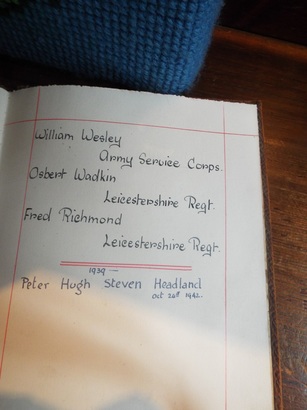 William Wesley
Army Service Corps.
Osbert Wadkin
Leicestershire Regt.
Fred Richmond
Leicestershire Regt.
1939 —
Peter Hugh Steven Headland
Oct 24th 1942.